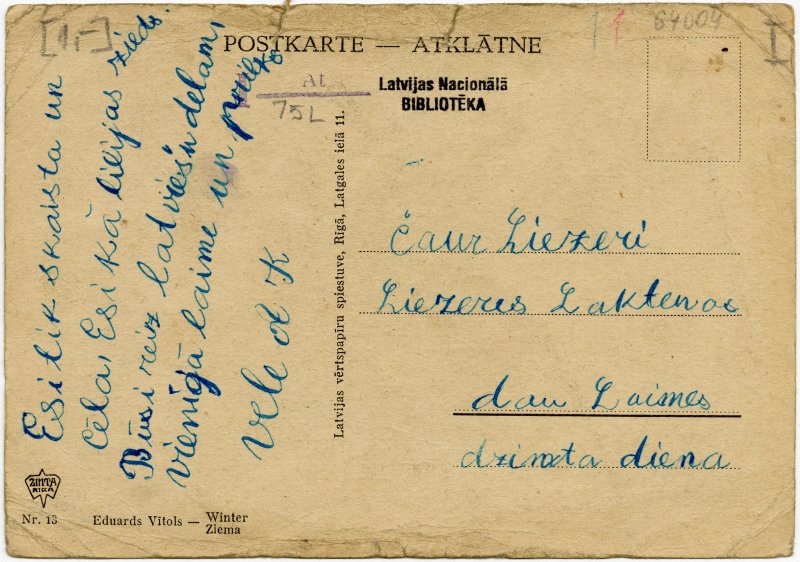 [1,-]
64004
POSTKARTE — ATKLĀTNE
Latvijas Nacionālā
BIBLIOTĒKA
At
75L
Esi tik skaista un
cēla, Esi kā lilijas zieds.
Būsi reiz latviešu dēlam,
vienīgā laime un prieks
Vēle A K
Latvijas vērtspapīru spiestuve, Rīgā, Latgales ielā 11.
Čaur Liezeri
Liezeres Laktenos
dau Laimes
dzimta diena
ZINTA
RIGA
Nr. 13
Eduards Vītols — Winter
Ziema